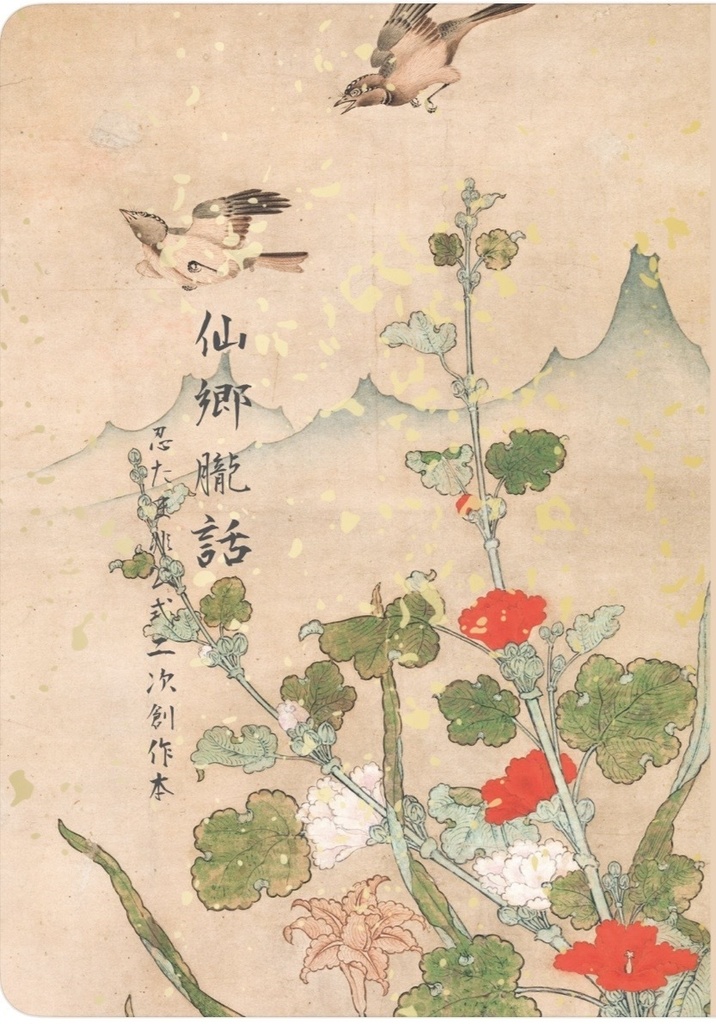 仙郷朧話
忍たま 二次創作本